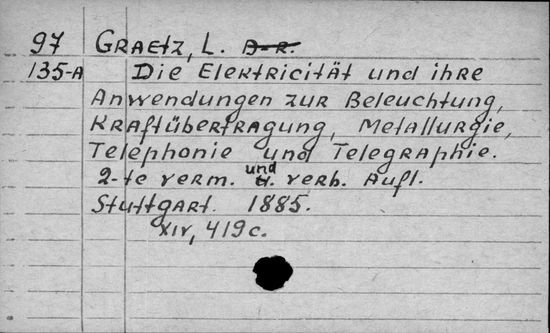 97 GRAETZ, L. D-R.
135-A Die Elektricität und ihre
Anwendungen zur Beleuchtung,
Kraftübertragung, Metallurgie,
Telephonie und Telegraphie.
2-te verm. und verb. Aufl.
Stuttgart. 1885.
XIV, 419 c.